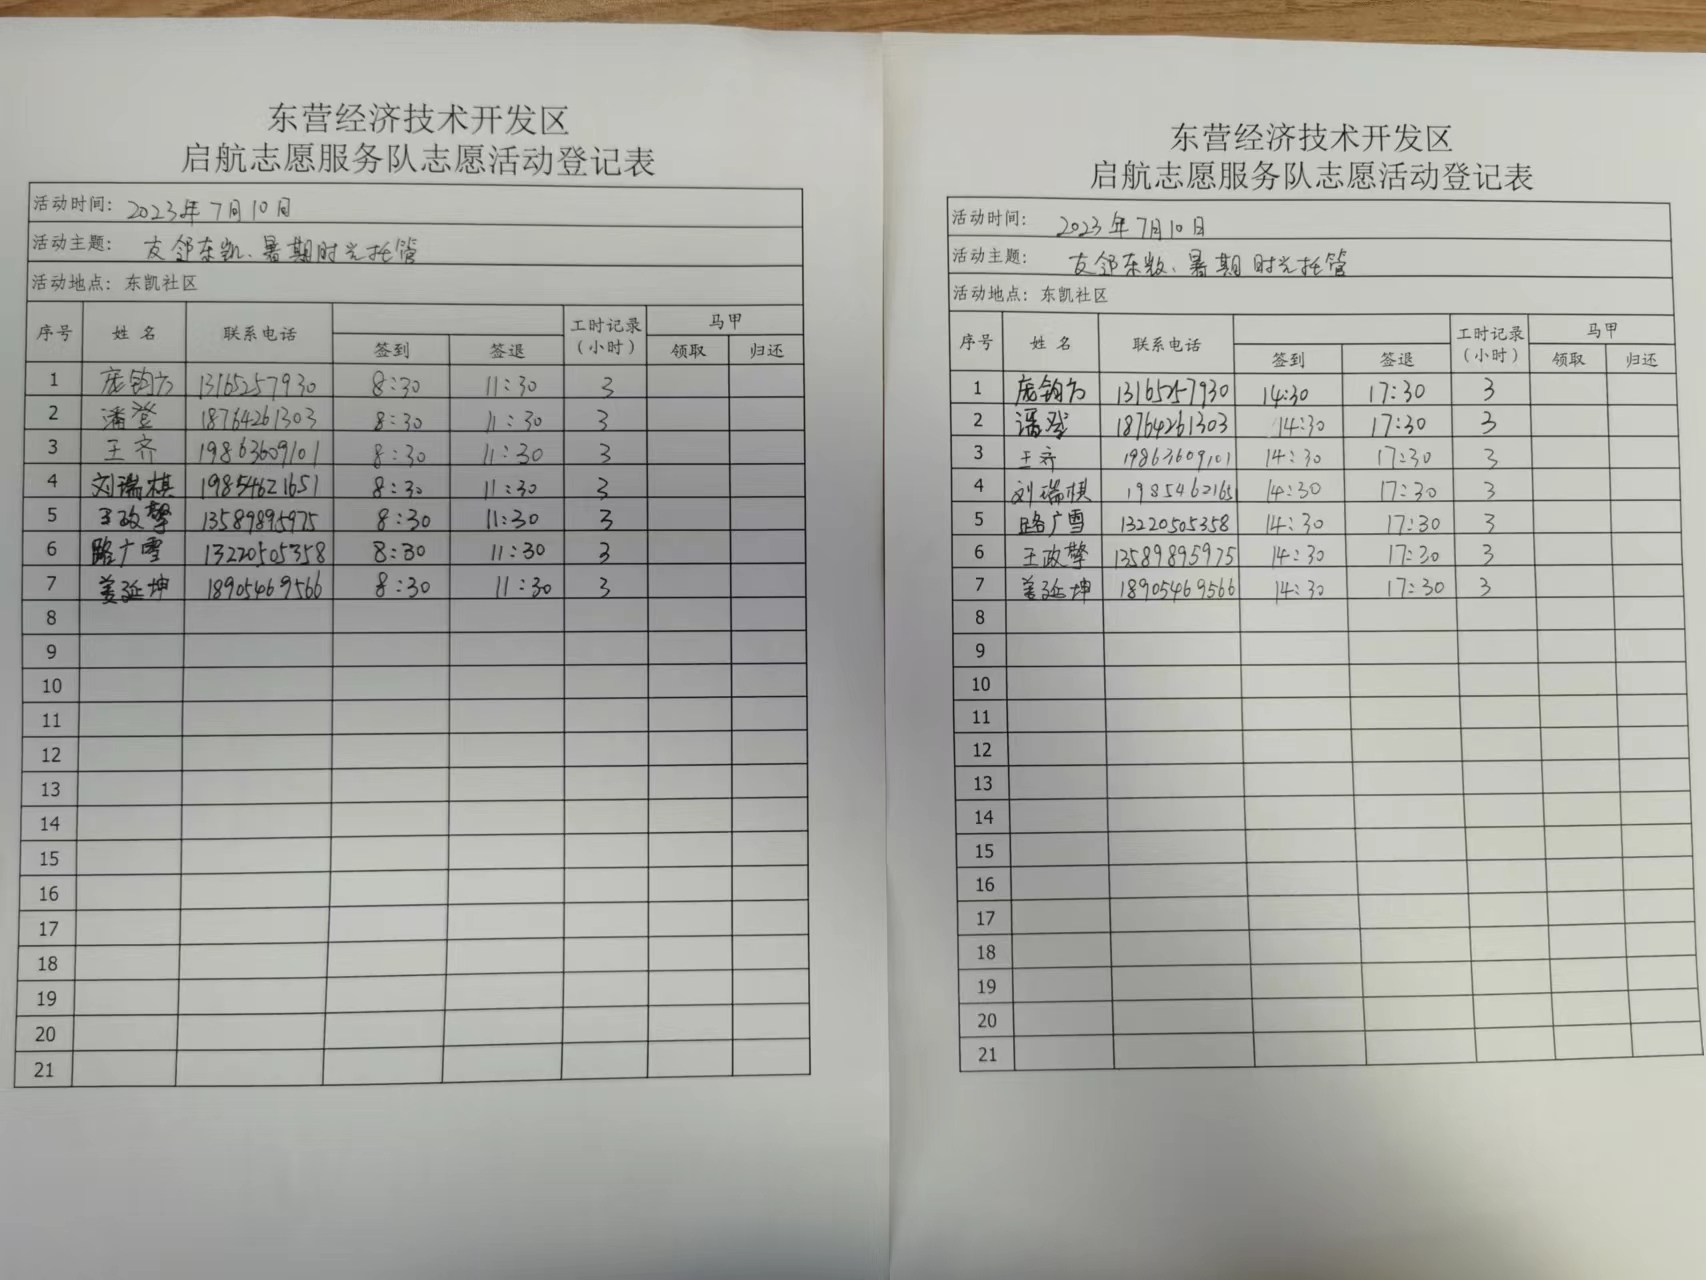 东营经济技术开发区
启航志愿服务队志愿活动登记表
活动时间: 2023年7月10日
活动主题: 友邻东凯、暑期时光托管
活动地点: 东凯社区
序号 姓名 联系电话 签到 签退 工时记录(小时) 马甲 领取 归还
1 庞钧 13165257930 8:30 11:30 3
2 潘登 18764261303 8:30 11:30 3
3 王齐 19863609101 8:30 11:30 3
4 刘瑞棋 19854621651 8:30 11:30 3
5 王政擎 13589895975 8:30 11:30 3
6 路广雪 13220505358 8:30 11:30 3
7 姜延坤 18905469566 8:30 11:30 3
8
9
10
11
12
13
14
15
16
17
18
19
20
21
东营经济技术开发区
启航志愿服务队志愿活动登记表
活动时间: 2023年7月10日
活动主题: 友邻东凯、暑期时光托管
活动地点: 东凯社区
序号 姓名 联系电话 签到 签退 工时记录(小时) 马甲 领取 归还
1 庞钧 13165257930 14:30 17:30 3
2 潘登 18764261303 14:30 17:30 3
3 王齐 19863609101 14:30 17:30 3
4 刘瑞棋 1985462165 14:30 17:30 3
5 路广雪 13220505358 14:30 17:30 3
6 王政擎 13589895975 14:30 17:30 3
7 姜延坤 18905469566 14:30 17:30 3
8
9
10
11
12
13
14
15
16
17
18
19
20
21